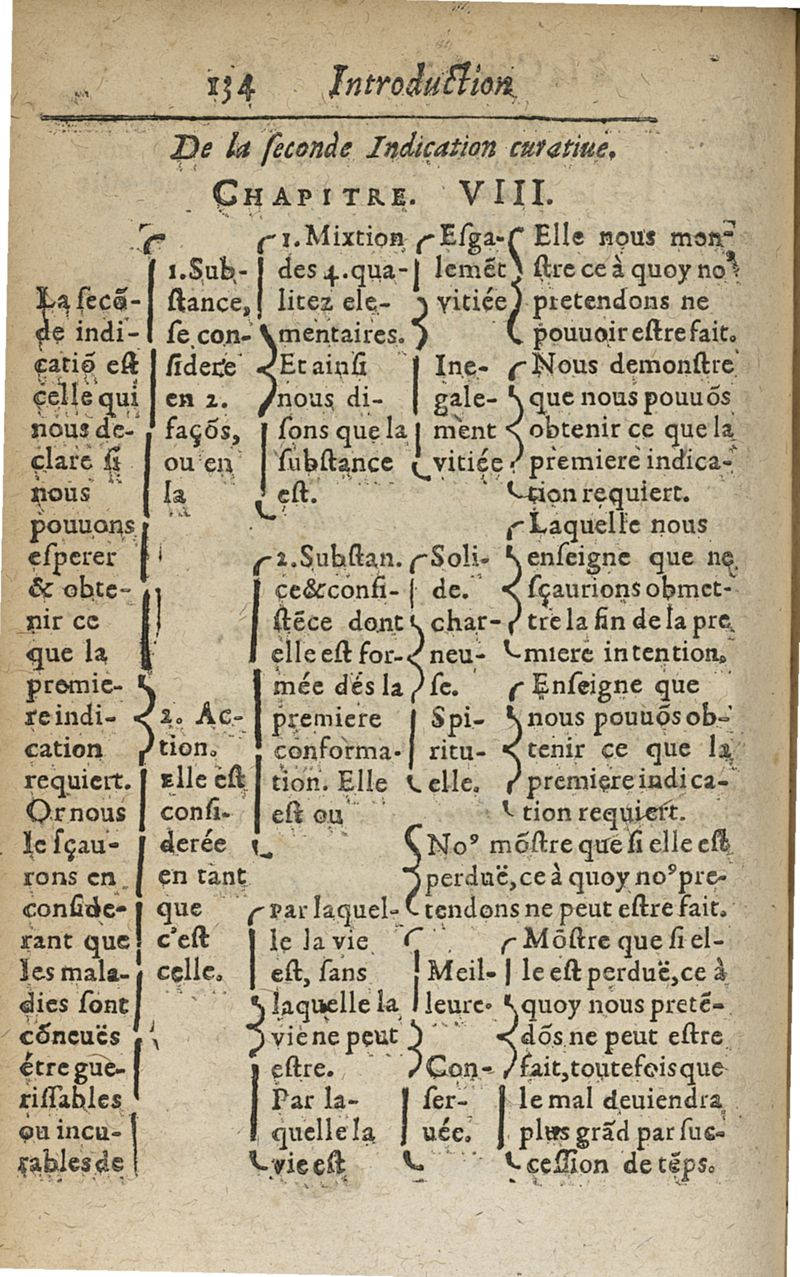 134 Introduction
De la seconde Indication curatiue.
CHAPITRE. VIII.
La secõ-
de indi-
catiõ est
celle qui
nous de-
clare si
nous
pouuons
esperer
& obte-
nir ce
que la
premie-
re indi-
cation
requiert.
Or nous
le sçau-
rons en
conside-
rant que
les mala-
dies sont
cõneuës
étre gue-
rissables
ou incu-
rables de
1. Sub-
stance,
se con-
sidere
en 2.
façõs,
ou en
la
1. Mixtion
des 4. qua-
litez ele-
mentaires.
Et ainsi
nous di-
sons que la
substance
est.
Esga-
lemẽt
vitiée
Elle nous mon-
stre ce à quoy noꝰ
pretendons ne
pouuoir estre fait.
Ine-
gale-
ment
vitiée
Nous demonstre
que nous pouuõs
obtenir ce que la
premiere indica-
tion requiert.
2. Substan.
ce & consi-
stẽce dont
elle est for-
mée dés la
premiere
conforma-
tion. Elle
est ou
Soli-
de.
char-
neu-
se.
Laquelle nous
enseigne que ne
sçaurions obmet-
tre la fin de la pre
miere intention.
Spi-
ritu-
elle.
Enseigne que
nous pouuõs ob-
tenir ce que la
premiere indica-
tion requiert.
2. Ac-
tion.
Elle est
consi-
derée
en tant
que
c'est
celle.
Par laquel-
le la vie
est, sans
laquelle la
vie ne peut
estre.
Noꝰ mõstre que si elle est
perduë, ce à quoy noꝰ pre-
tendons ne peut estre fait.
Par la-
quelle la
vie est
Meil-
leure.
Con-
ser-
uée.
Mõstre que si el-
le est perduë, ce à
quoy nous pretẽ-
dõs ne peut estre
fait, toutefois que
le mal deuiendra
plus grãd par suc-
cession de tẽps.